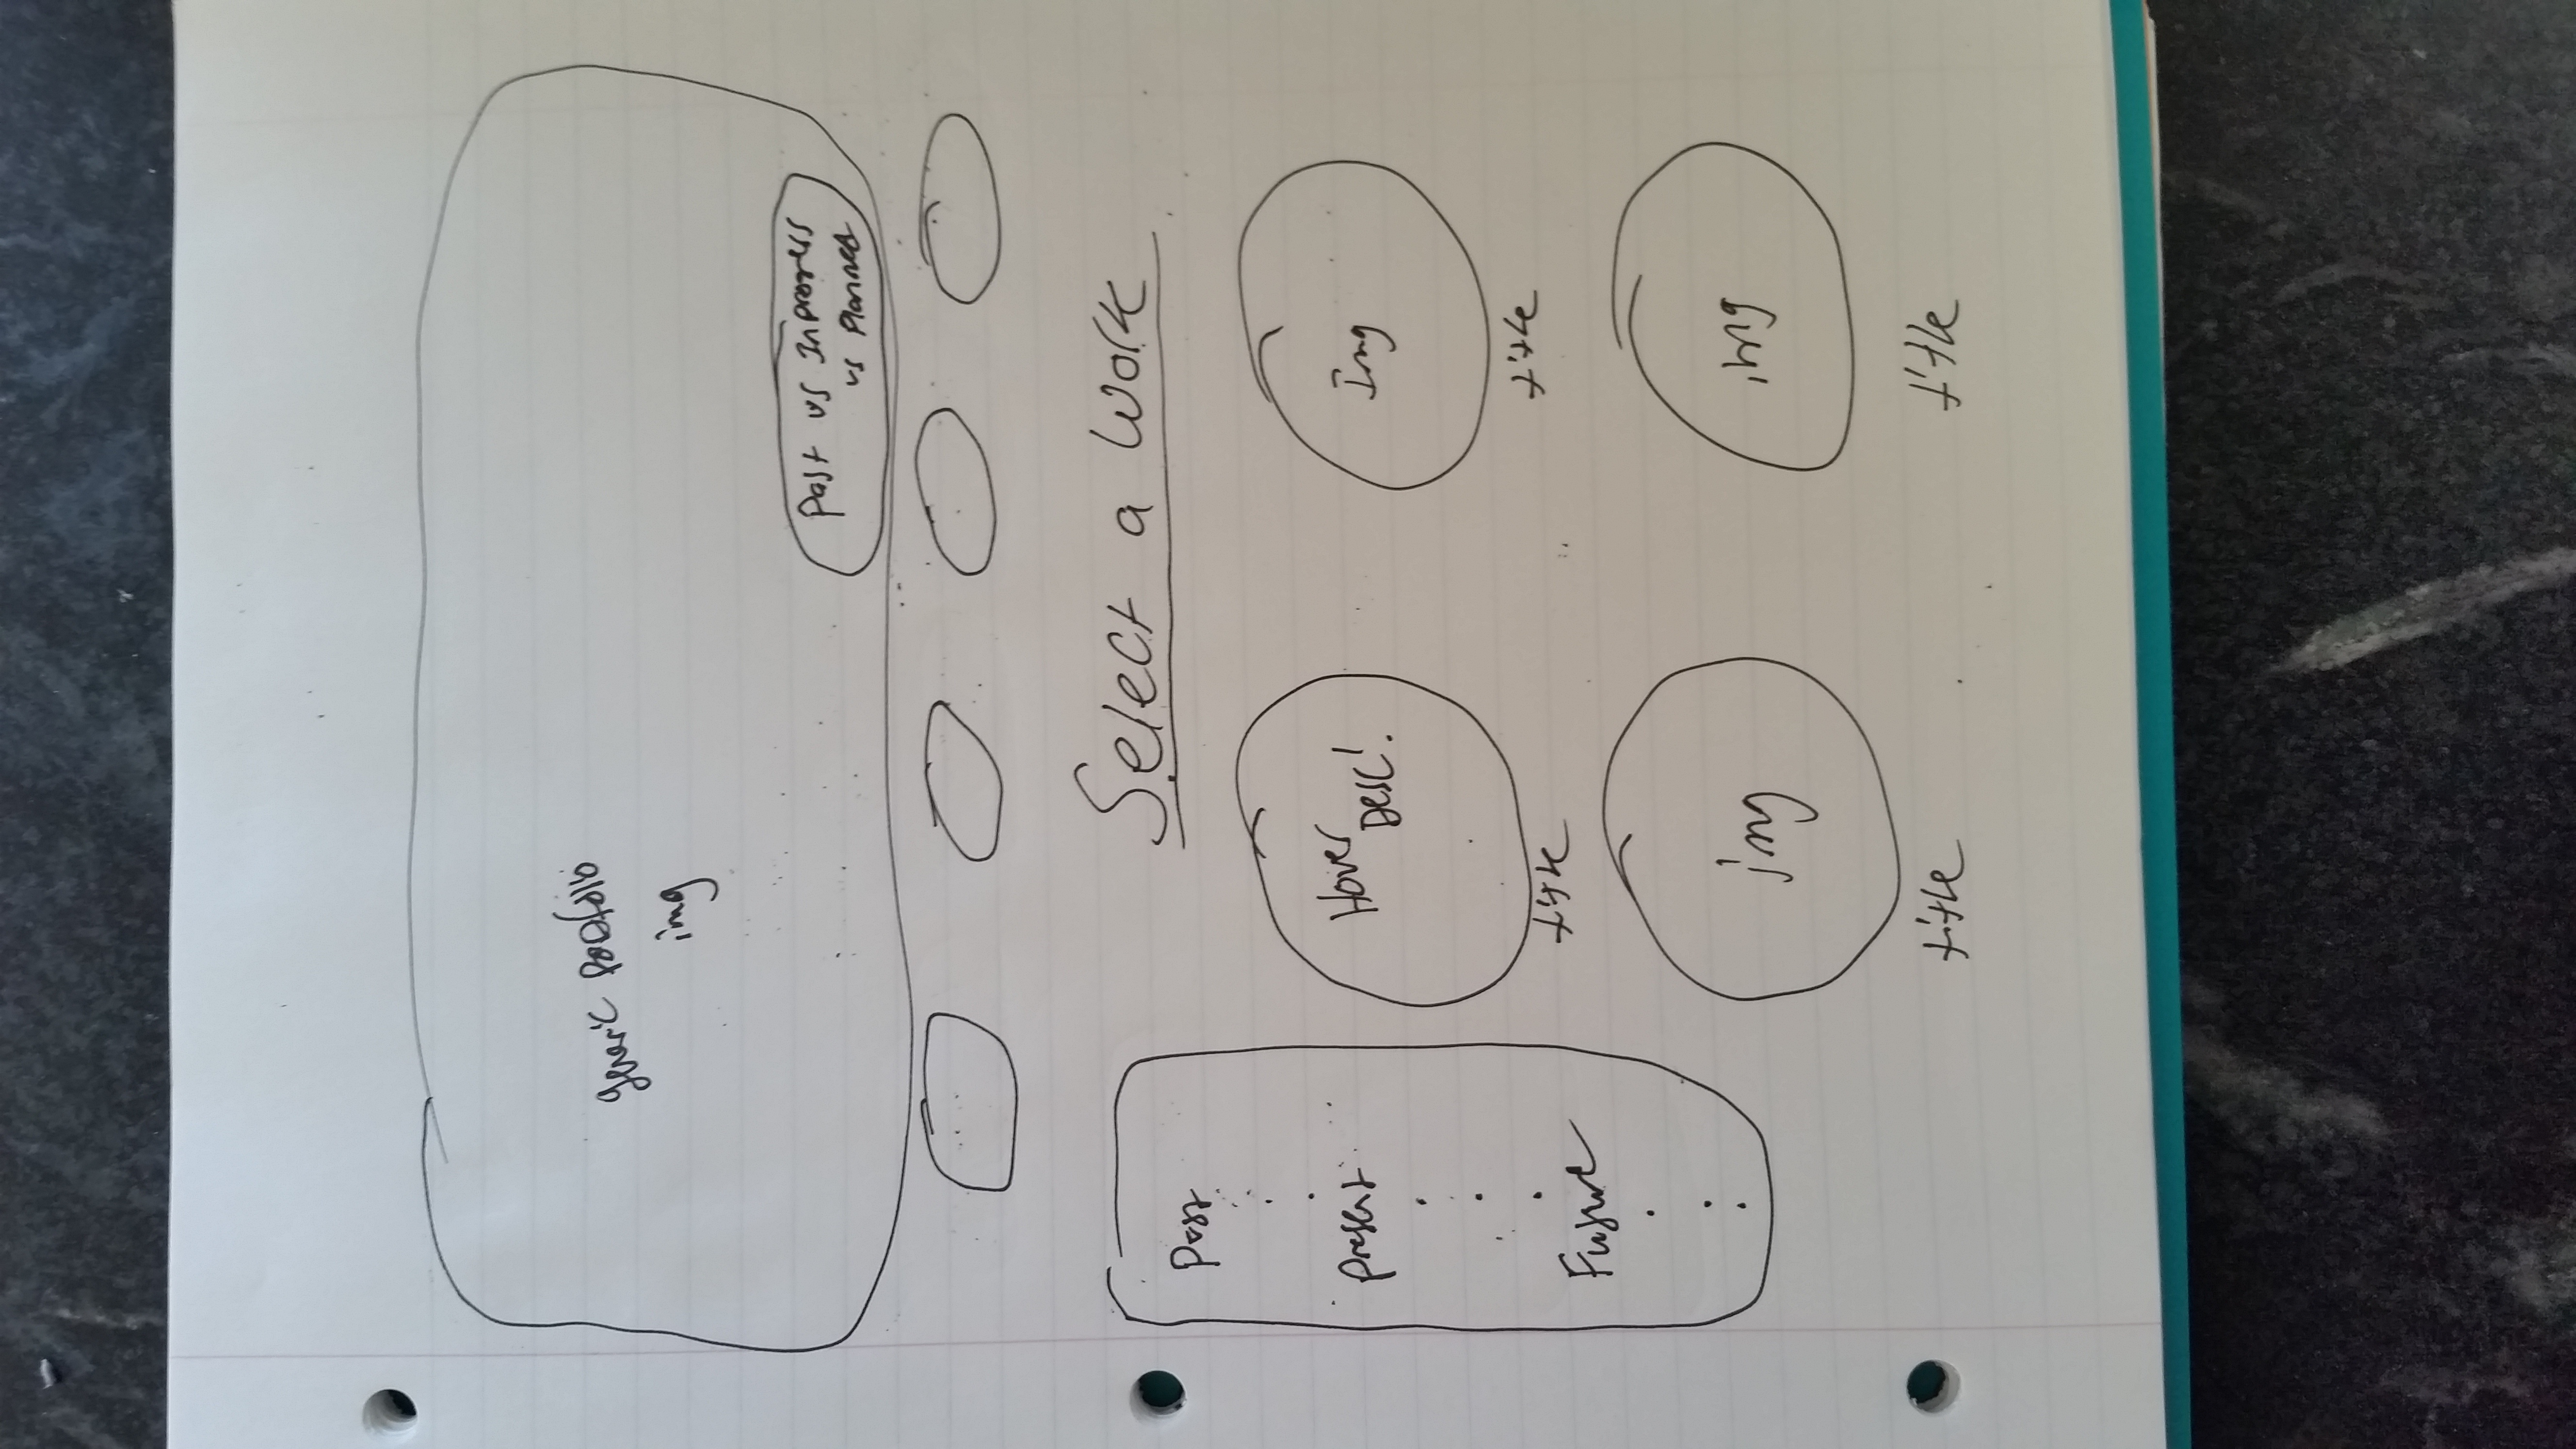 generic Portfolio
img
Past vs Inprogress
vs Planned
Select a Work
Past
Present
Future
Hover
Desc!
Img
title
title
img
img
title
title